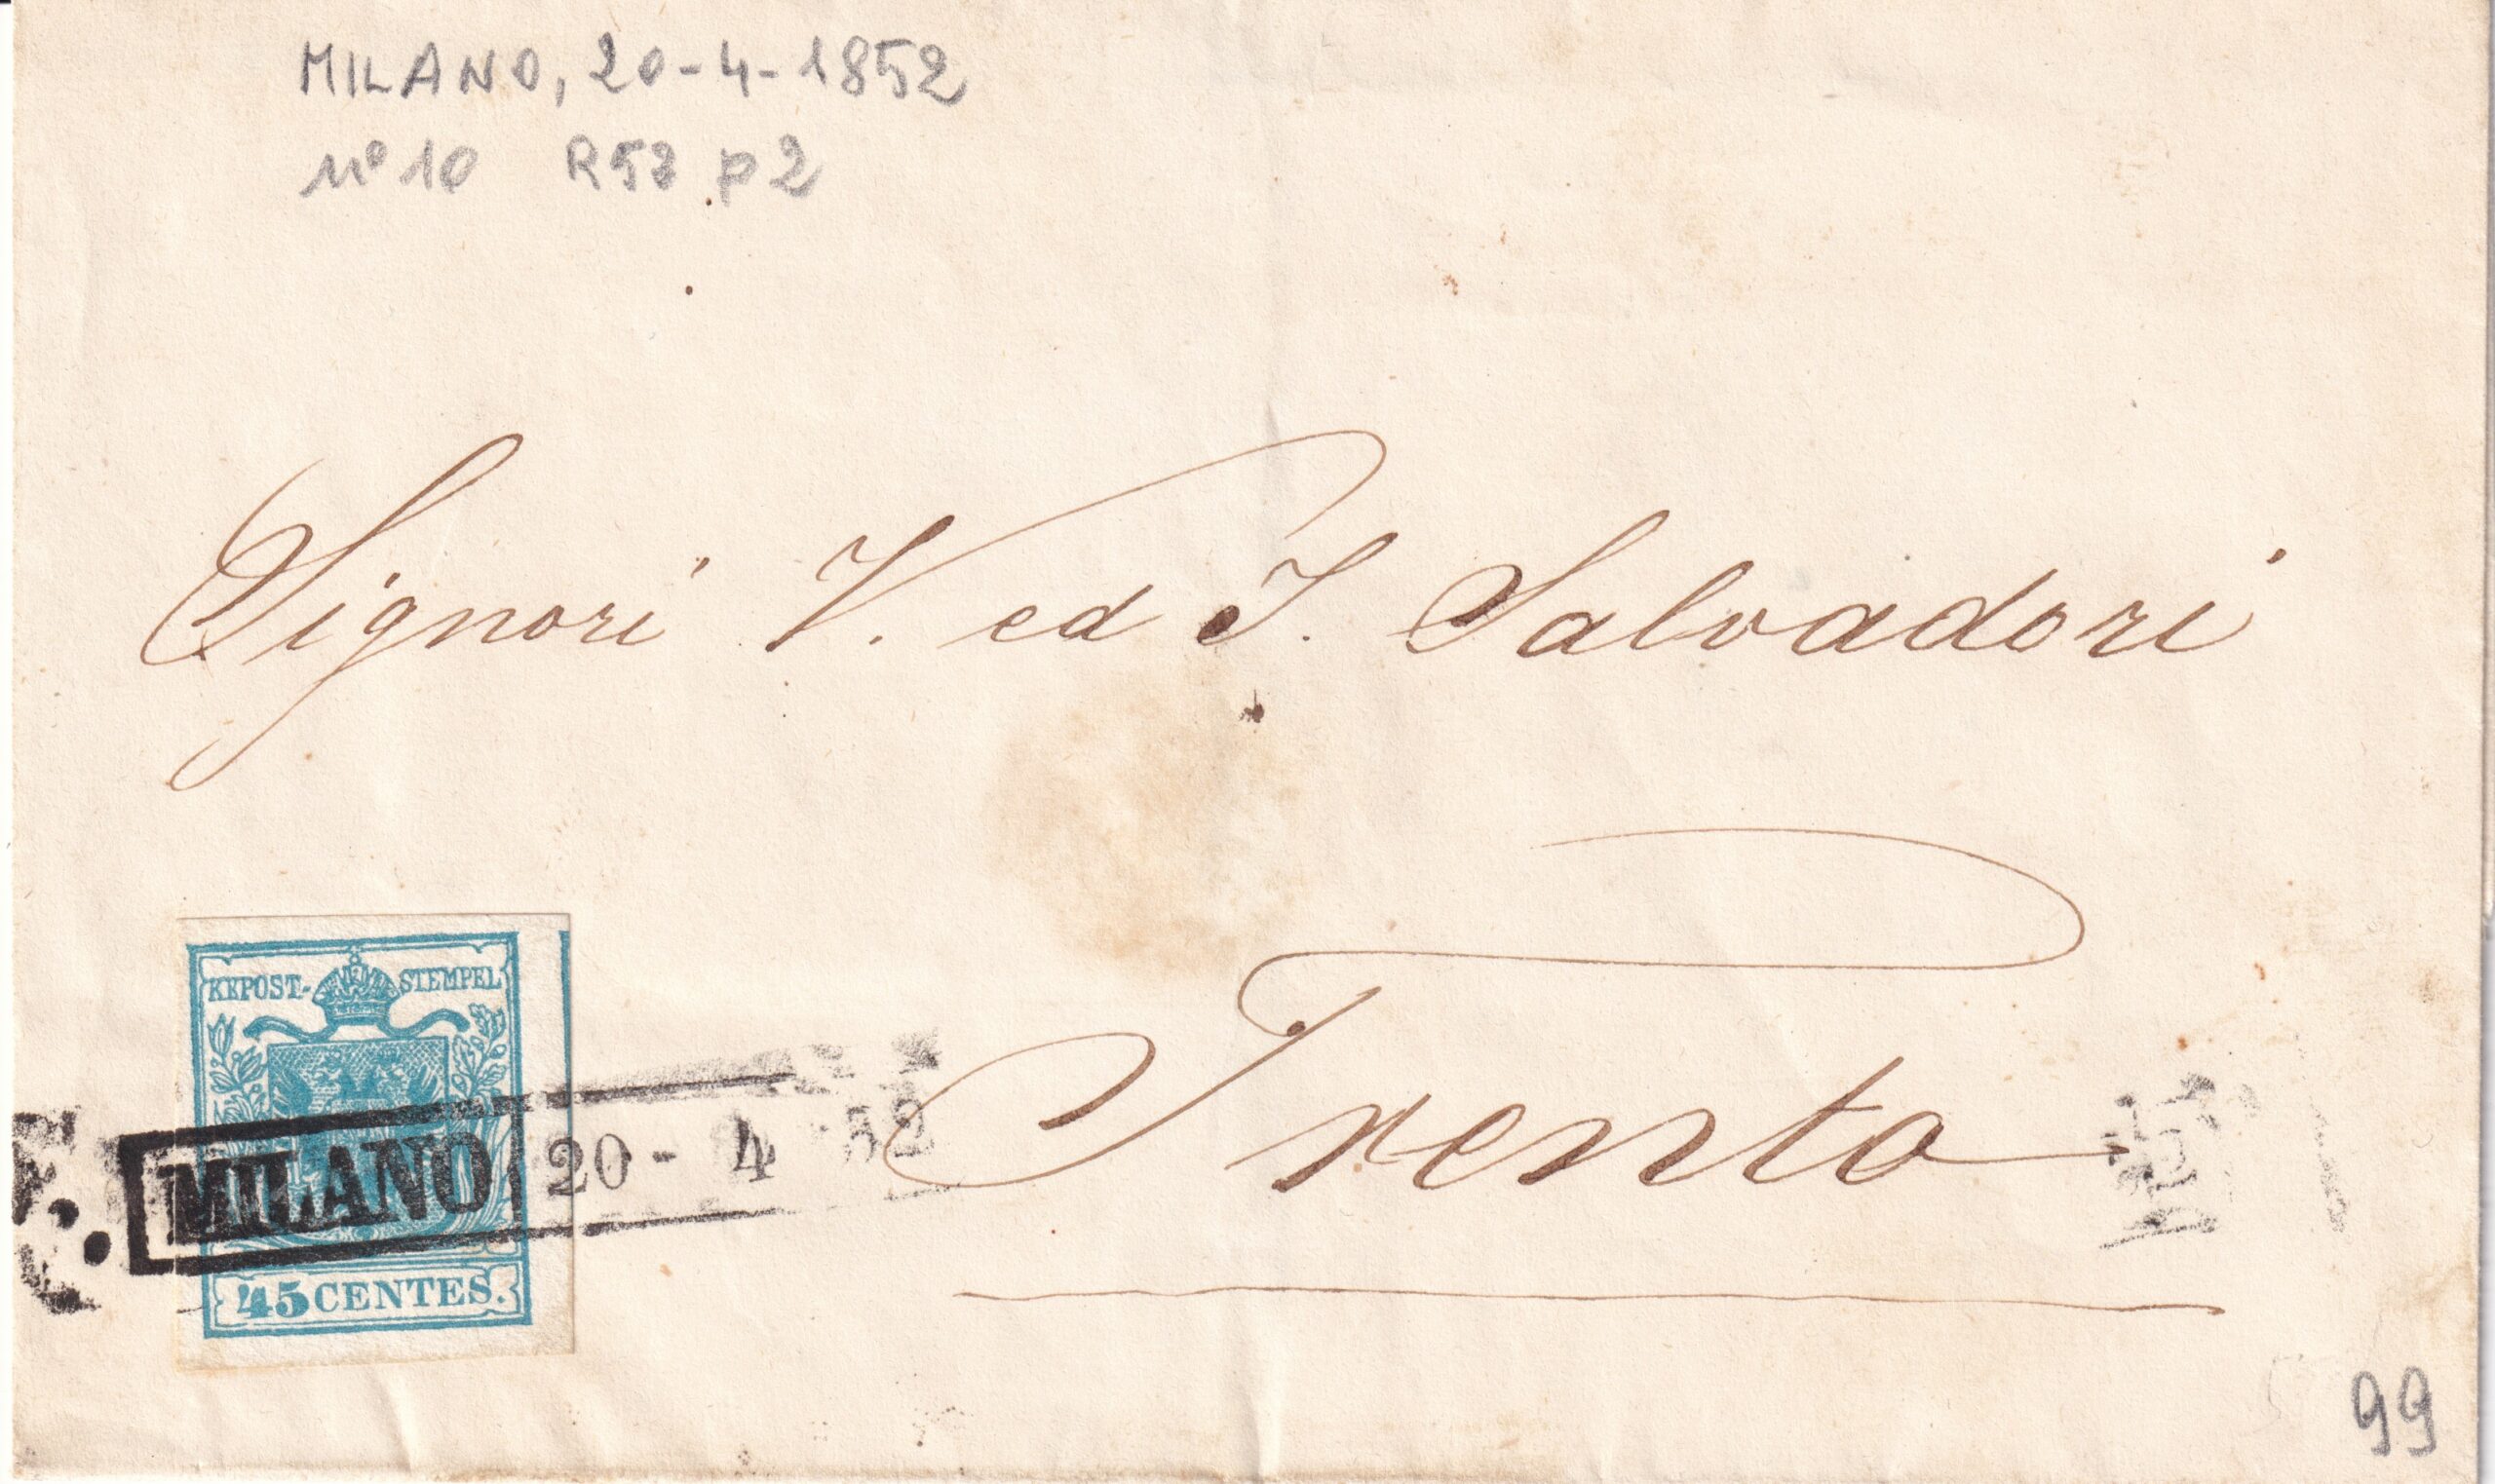 MILANO, 20-4-1852
nº 10 R53 p2
Signori V. ed I. Salvadori
Trento
KKPOST-STEMPEL
MILANO 20 - 4 52
45 CENTES.
99